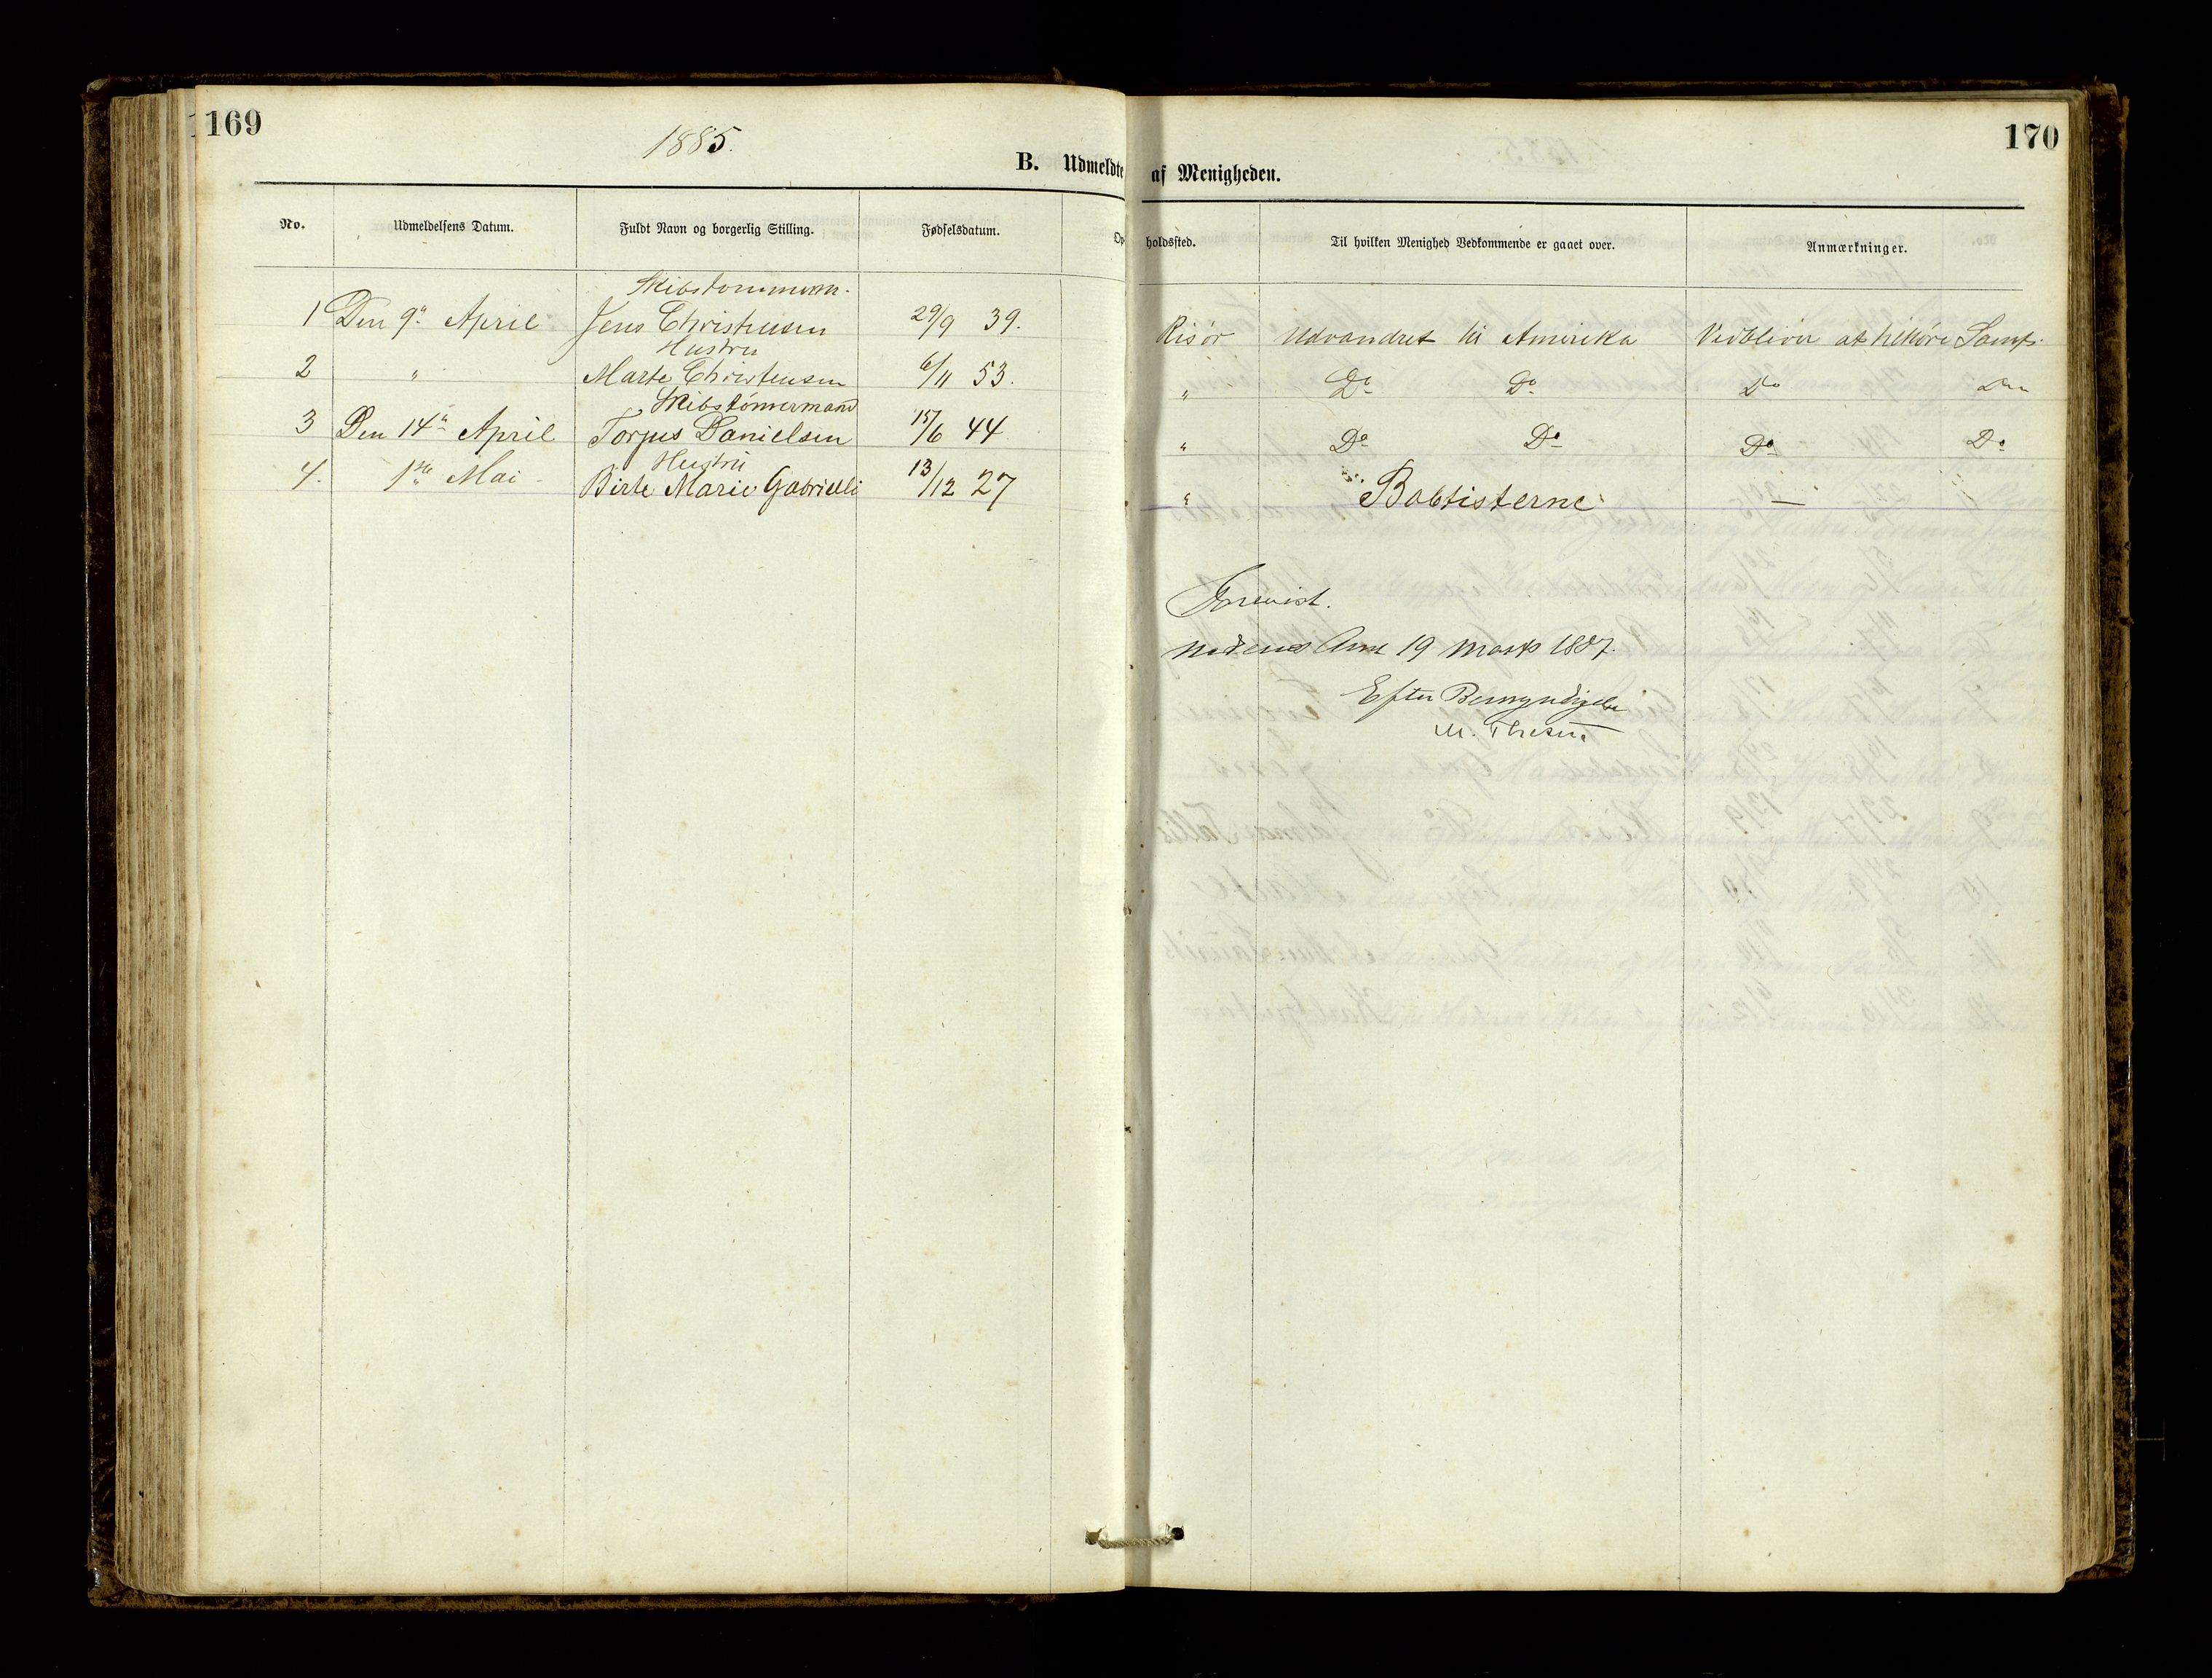 169
170
1885.
B. Udmeldte af Menigheden.
No. Udmeldelsens Datum. Fuldt Navn og borgerlig Stilling. Fødselsdatum. Opholdsted. Til hvilken Menighed Vedkommende er gaaet over. Anmærkninger.
Skibstømmerm.
1 Den 9de April Jens Christensen 29/9 39. Risør Udvandret til Amerika Vedbliver at tilhøre Samf.
Hustru
2 " Marte Christensen 6/11 53. " Do Do Do Do
Skibstømmermand
3 Den 14de April Torjus Danielsen 15/6 44 " Do Do Do Do
Hustru
4. 1ste Mai Birte Marie Gabrielli 13/12 27 " Babtisterne —
Forevist.
Nedenes Amt 19 Marts 1887.
Efter Bemyndigelse
M. Thesen